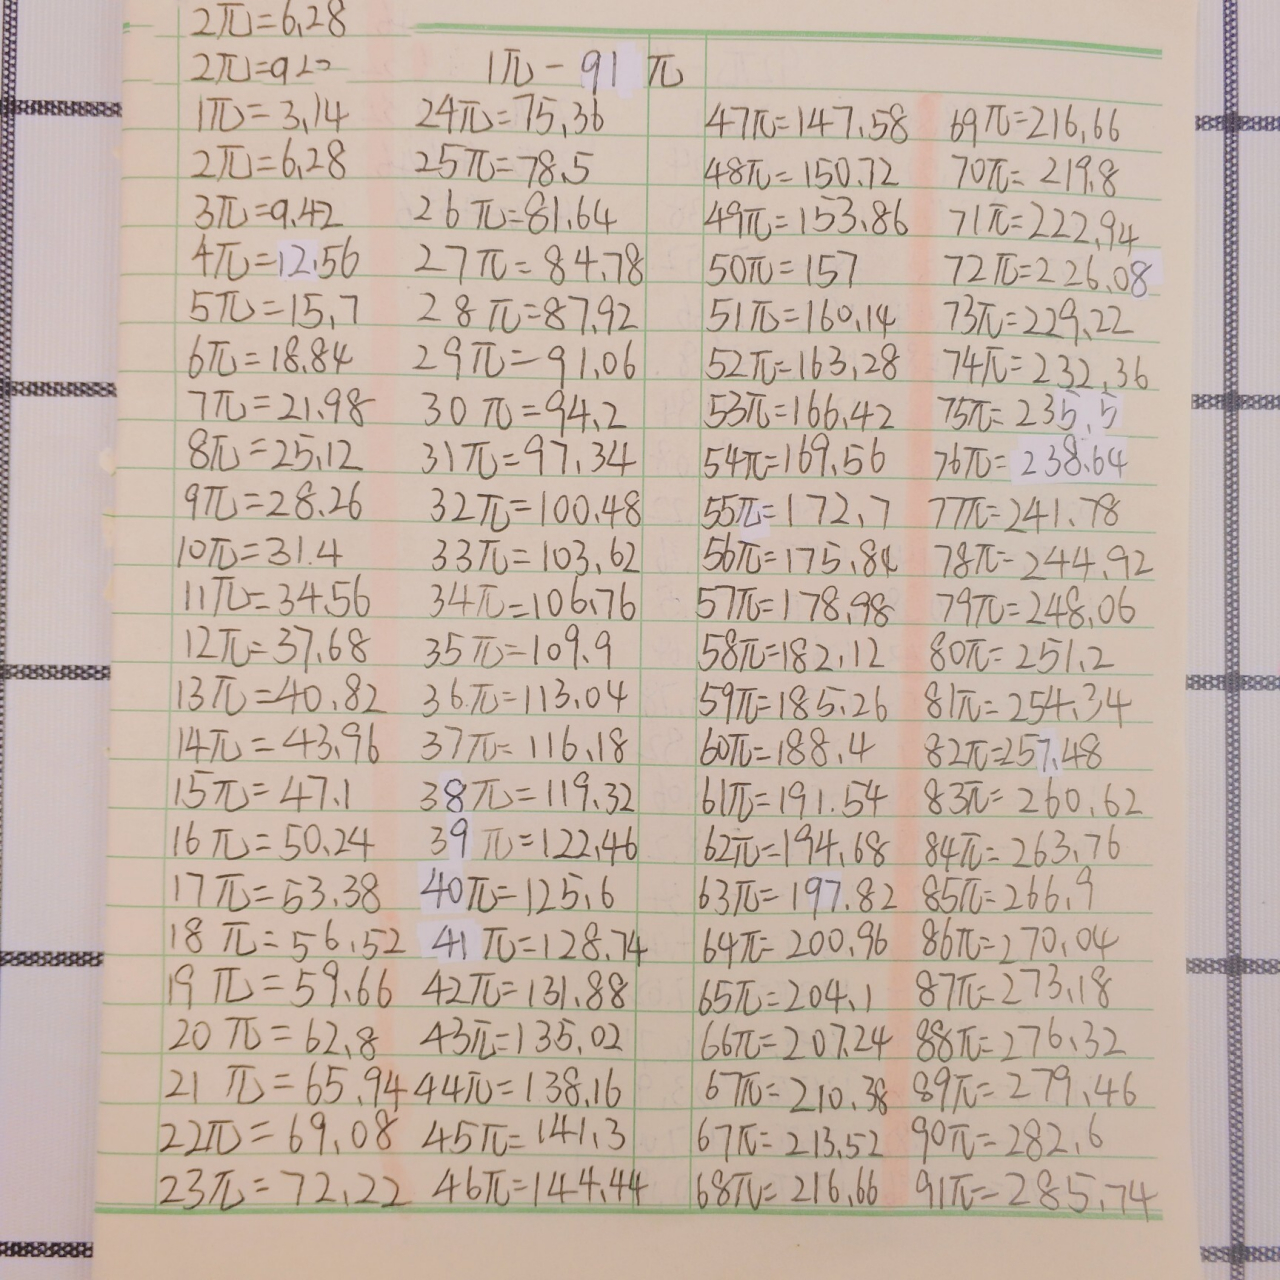 2π=6.28
2π=9.42
1π-91π
1π=3.14
2π=6.28
3π=9.42
4π=12.56
5π=15.7
6π=18.84
7π=21.98
8π=25.12
9π=28.26
10π=31.4
11π=34.56
12π=37.68
13π=40.82
14π=43.96
15π=47.1
16π=50.24
17π=53.38
18π=56.52
19π=59.66
20π=62.8
21π=65.94
22π=69.08
23π=72.22
24π=75.36
25π=78.5
26π=81.64
27π=84.78
28π=87.92
29π=91.06
30π=94.2
31π=97.34
32π=100.48
33π=103.62
34π=106.76
35π=109.9
36π=113.04
37π=116.18
38π=119.32
39π=122.46
40π=125.6
41π=128.74
42π=131.88
43π=135.02
44π=138.16
45π=141.3
46π=144.44
47π=147.58
48π=150.72
49π=153.86
50π=157
51π=160.14
52π=163.28
53π=166.42
54π=169.56
55π=172.7
56π=175.84
57π=178.98
58π=182.12
59π=185.26
60π=188.4
61π=191.54
62π=194.68
63π=197.82
64π=200.96
65π=204.1
66π=207.24
67π=210.38
67π=213.52
68π=216.66
69π=216.66
70π=219.8
71π=222.94
72π=226.08
73π=229.22
74π=232.36
75π=235.5
76π=238.64
77π=241.78
78π=244.92
79π=248.06
80π=251.2
81π=254.34
82π=257.48
83π=260.62
84π=263.76
85π=266.9
86π=270.04
87π=273.18
88π=276.32
89π=279.46
90π=282.6
91π=285.74